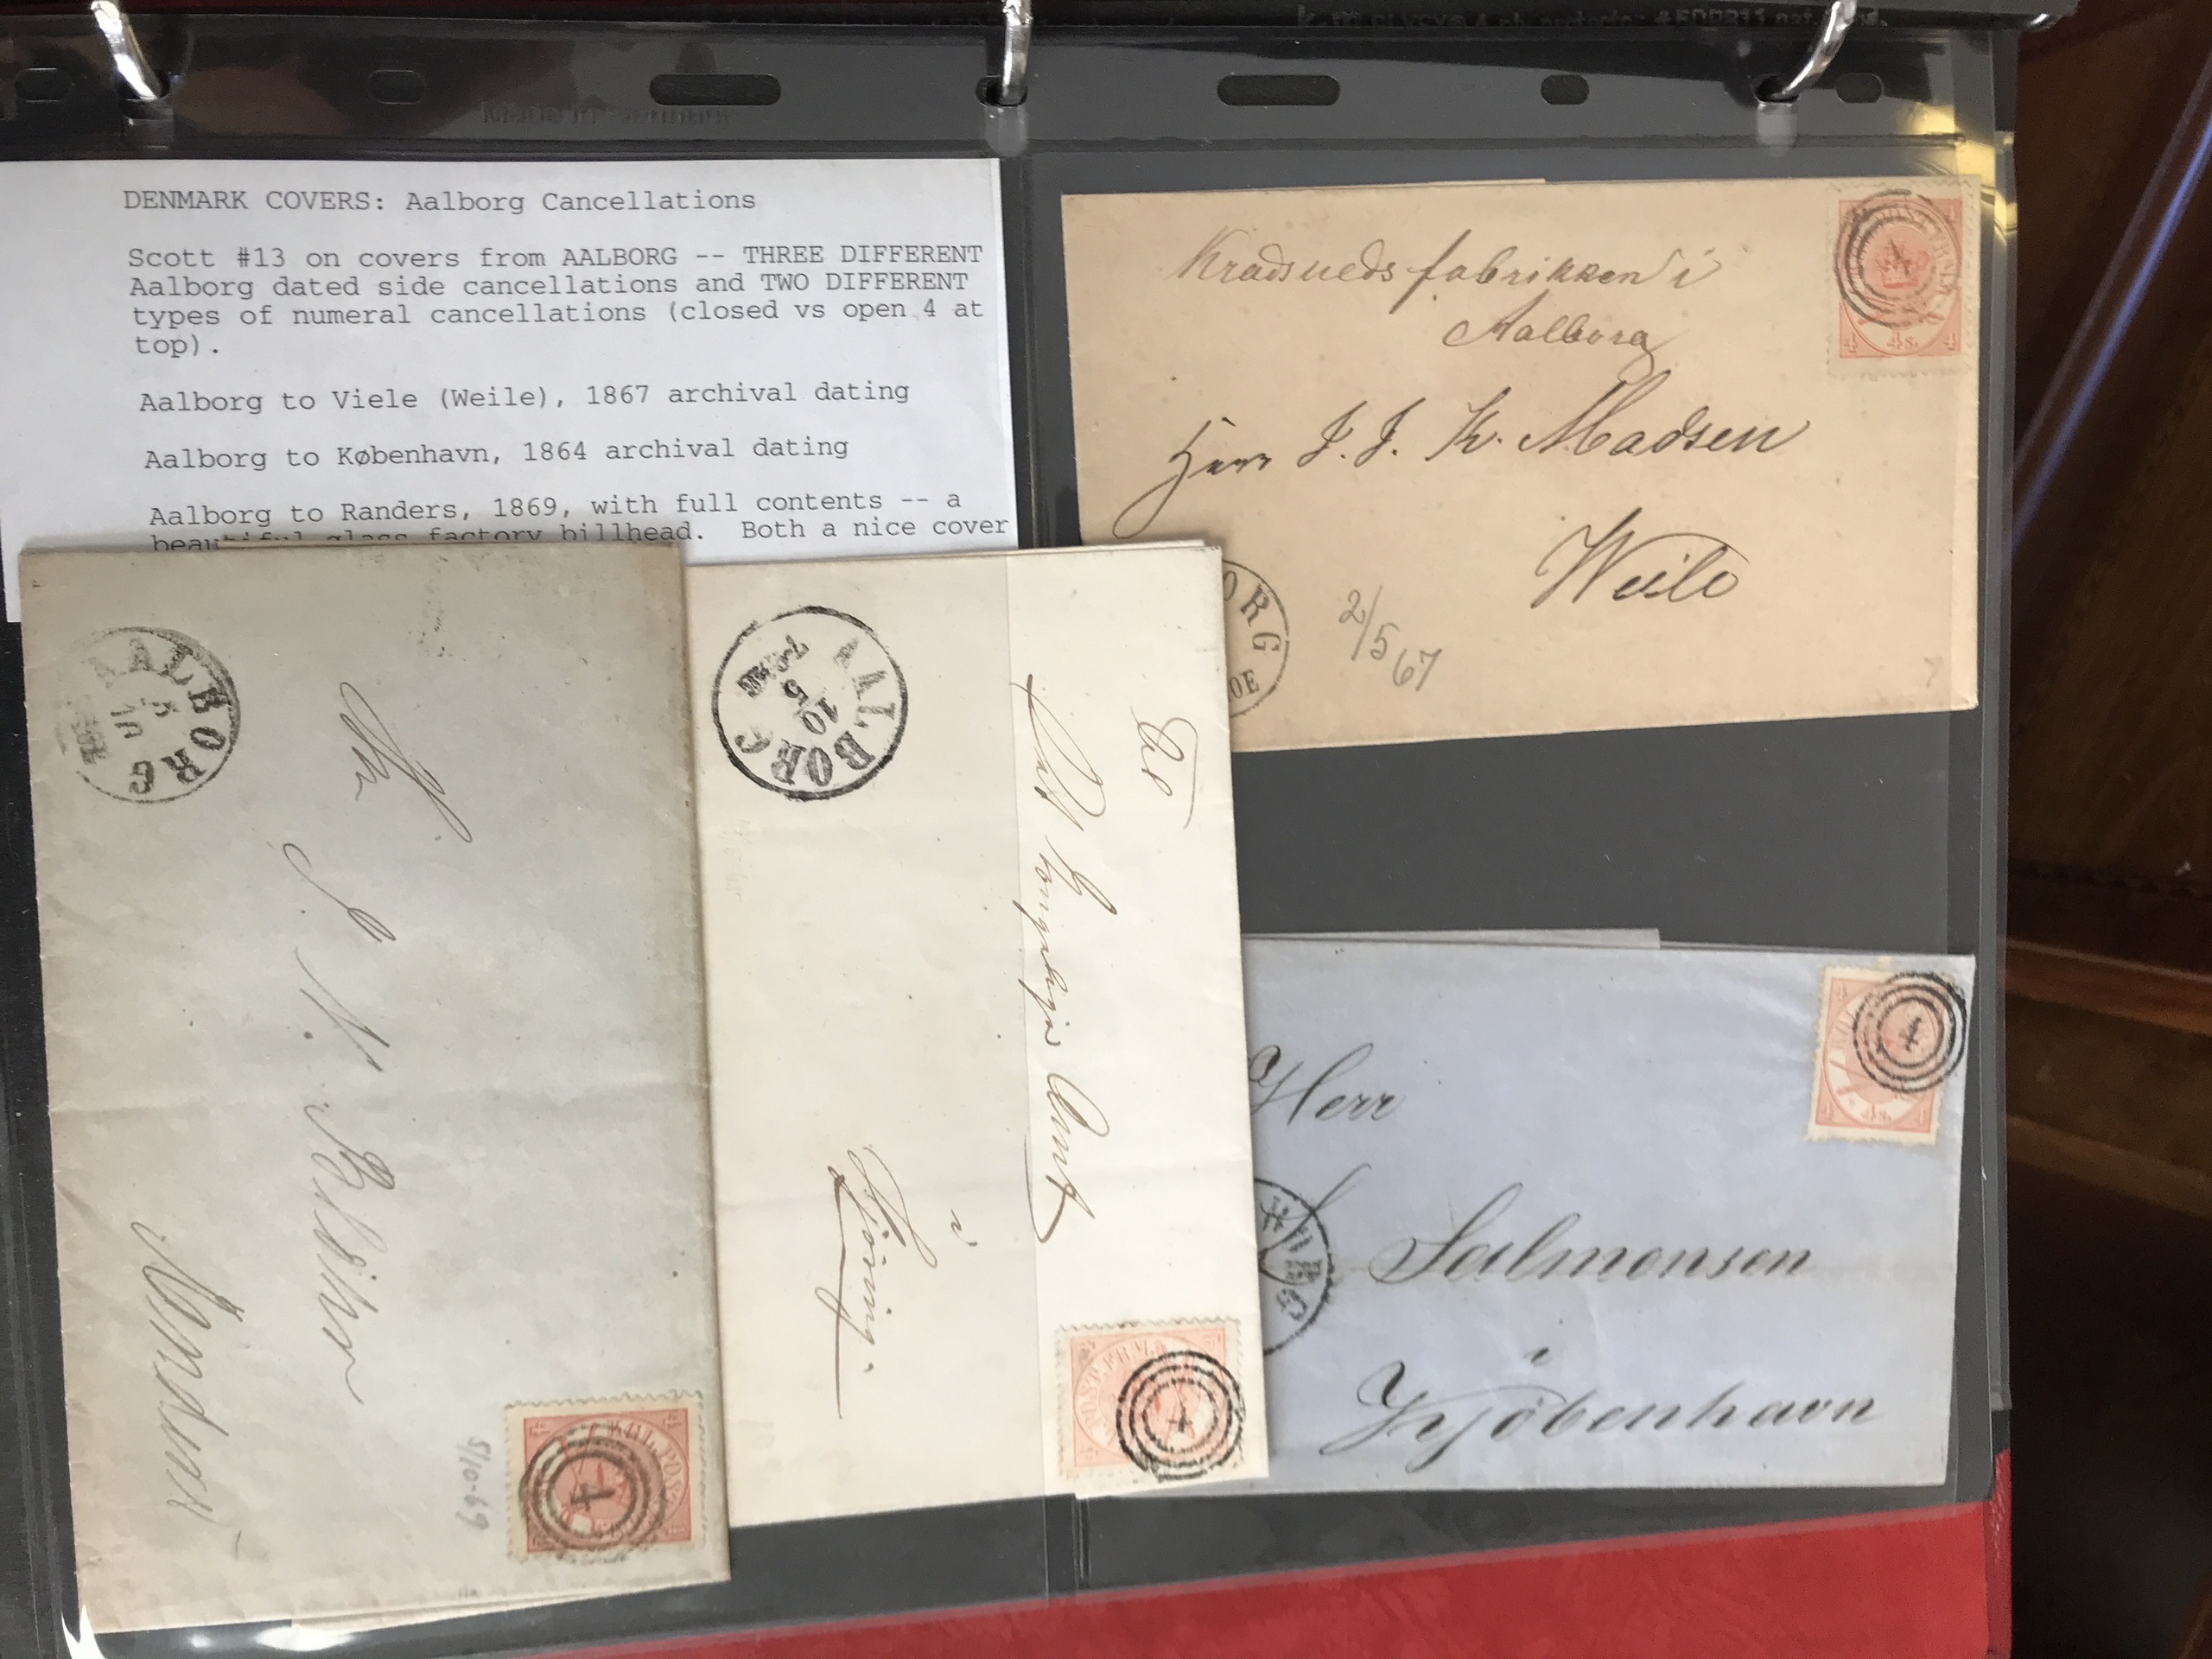 Made in Germany
DENMARK COVERS: Aalborg Cancellations
Scott #13 on covers from AALBORG -- THREE DIFFERENT
Aalborg dated side cancellations and TWO DIFFERENT
types of numeral cancellations (closed vs open 4 at
top).
Aalborg to Viele (Weile), 1867 archival dating
Aalborg to København, 1864 archival dating
Aalborg to Randers, 1869, with full contents -- a
beautiful glass factory billhead. Both a nice cover
Kradsuldsfabrikken i
Aalborg
Herr J. J. Kr. Madsen
Weile
ORG
2/5 67
4
4 4S. 4
AALBORG
5
10
S. N.
Randers
5/10-69
4
KGL POS
AALBORG
10
5
Amt
i
Hjörring.
POST FRM
4
Herr
Salmonsen
i
Kjöbenhavn
BG
4
4 4S. 4